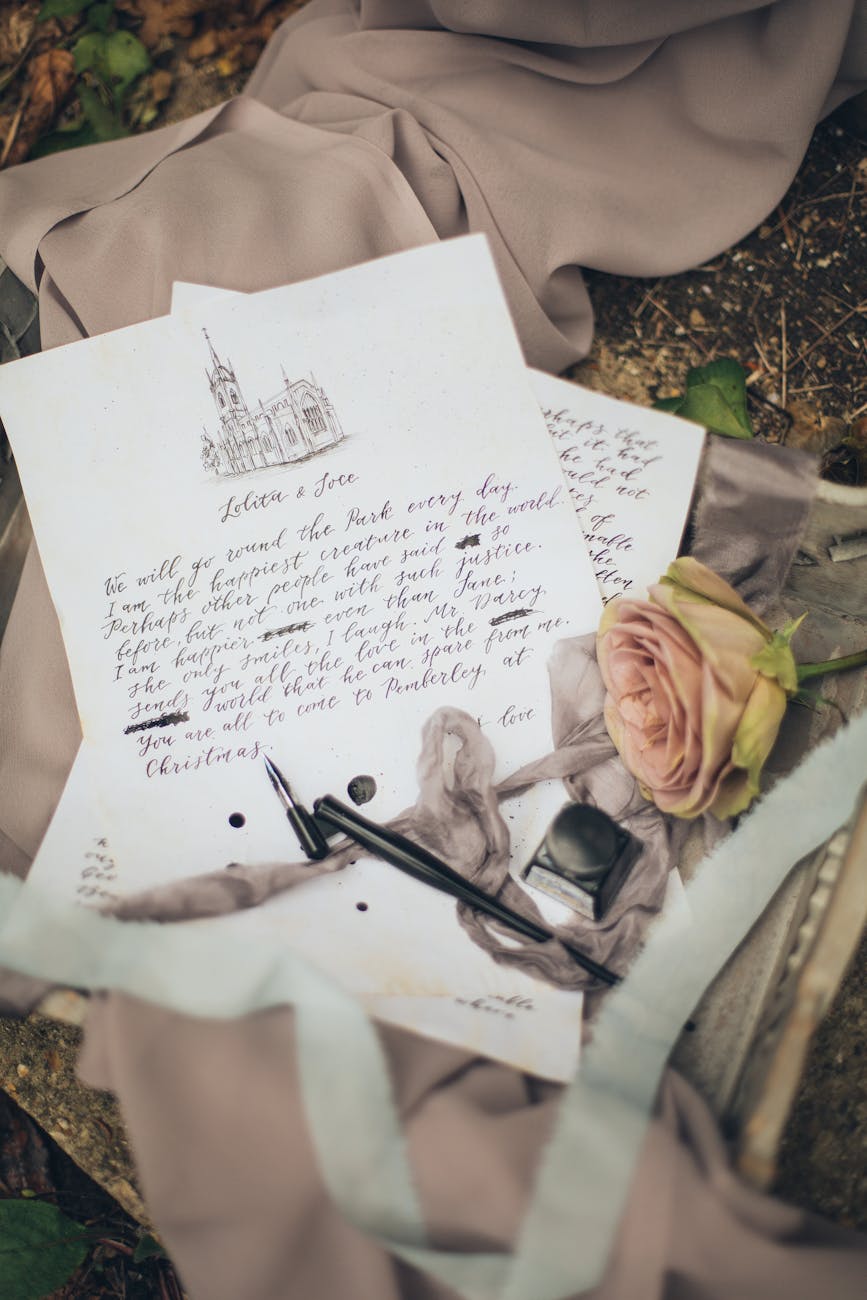 Lolita & Joce
We will go round the Park every day.
I am the happiest creature in the world.
Perhaps other people have said so
before, but not one with such justice.
I am happier even than Jane;
she only smiles, I laugh. Mr. Darcy
sends you all the love in the
world that he can spare from me.
You are all to come to Pemberley, at
Christmas.
love
perhaps that
but it had
he had
could not
of
often
where